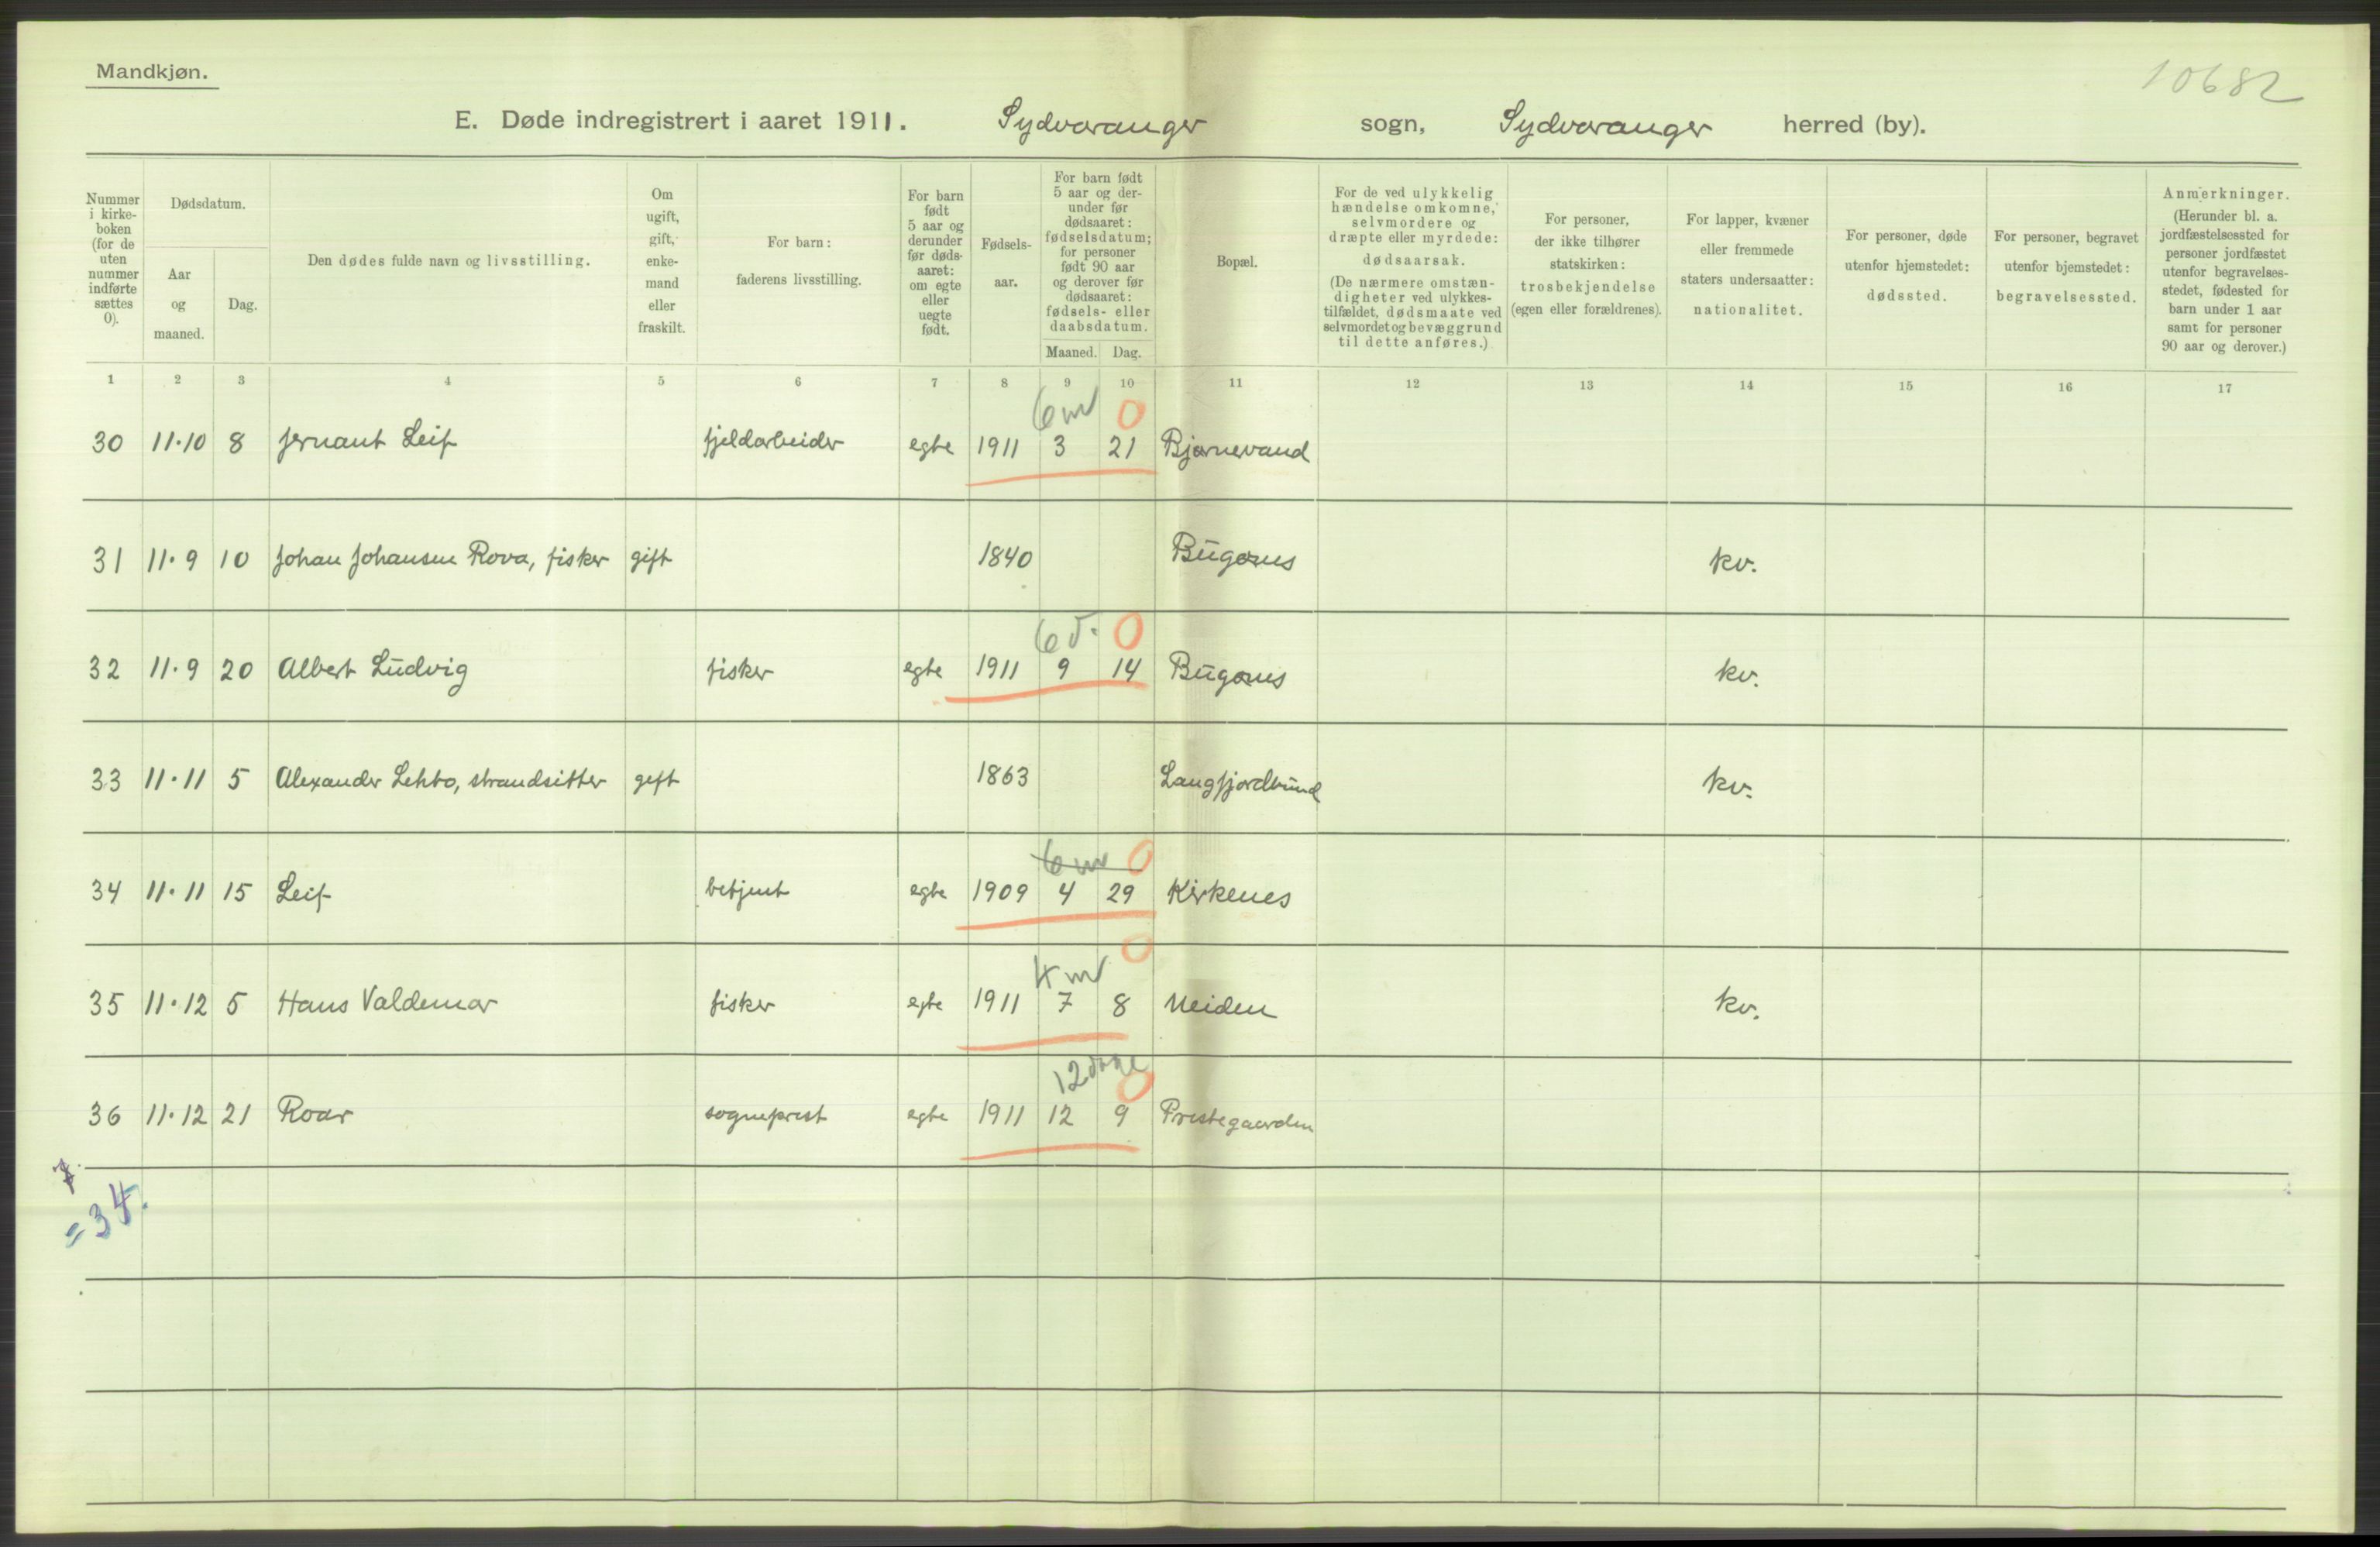 Mandkjøn.
10682
E. Døde indregistrert i aaret 1911. Sydvaranger sogn, Sydvaranger herred (by).
Nummer i kirke-boken (for de uten nummer indførte sættes 0).
Dødsdatum.
Aar og maaned.
Dag.
Den dødes fulde navn og livsstilling.
Om ugift, gift, enke-mand eller fraskilt.
For barn: faderens livsstilling.
For barn født 5 aar og derunder før døds-aaret: om egte eller uegte født.
Fødsels-aar.
For barn født 5 aar og der-under før dødsaaret: fødselsdatum; for personer født 90 aar og derover før dødsaaret: fødsels- eller daabsdatum.
Maaned. Dag.
Bopæl.
For de ved ulykkelig hændelse omkomne, selvmordere og dræpte eller myrdede: dødsaarsak.
(De nærmere omstæn-digheter ved ulykkes-tilfældet, dødsmaate ved selvmordet og bevæggrund til dette anføres.)
For personer, der ikke tilhører statskirken: trosbekjendelse (egen eller forældrenes).
For lapper, kvæner eller fremmede staters undersaatter: nationalitet.
For personer, døde utenfor hjemstedet: dødssted.
For personer, begravet utenfor hjemstedet: begravelsessted.
Anmerkninger.
(Herunder bl. a. jordfæstelsessted for personer jordfæstet utenfor begravelses-stedet, fødested for barn under 1 aar samt for personer 90 aar og derover.)
1 2 3 4 5 6 7 8 9 10 11 12 13 14 15 16 17
6 m 0
30 11.10 8 Jernant Leif fjeldarbeider egte 1911 3 21 Bjørnevand
31 11.9 10 Johan Johansen Rova, fisker gift 1840 Bugønes kv.
6 d. 0
32 11.9 20 Albert Ludvig fisker egte 1911 9 14 Bugønes kv.
33 11.11 5 Alexander Lehto, strandsitter gift 1863 Langfjordbund kv.
6 m 0
34 11.11 15 Leif betjent egte 1909 4 29 Kirkenes
4 m 0
35 11.12 5 Hans Valdemar fisker egte 1911 7 8 Neiden kv.
12 dage 0
36 11.12 21 Roar sogneprest egte 1911 12 9 Prestegaarden
7.
=34.